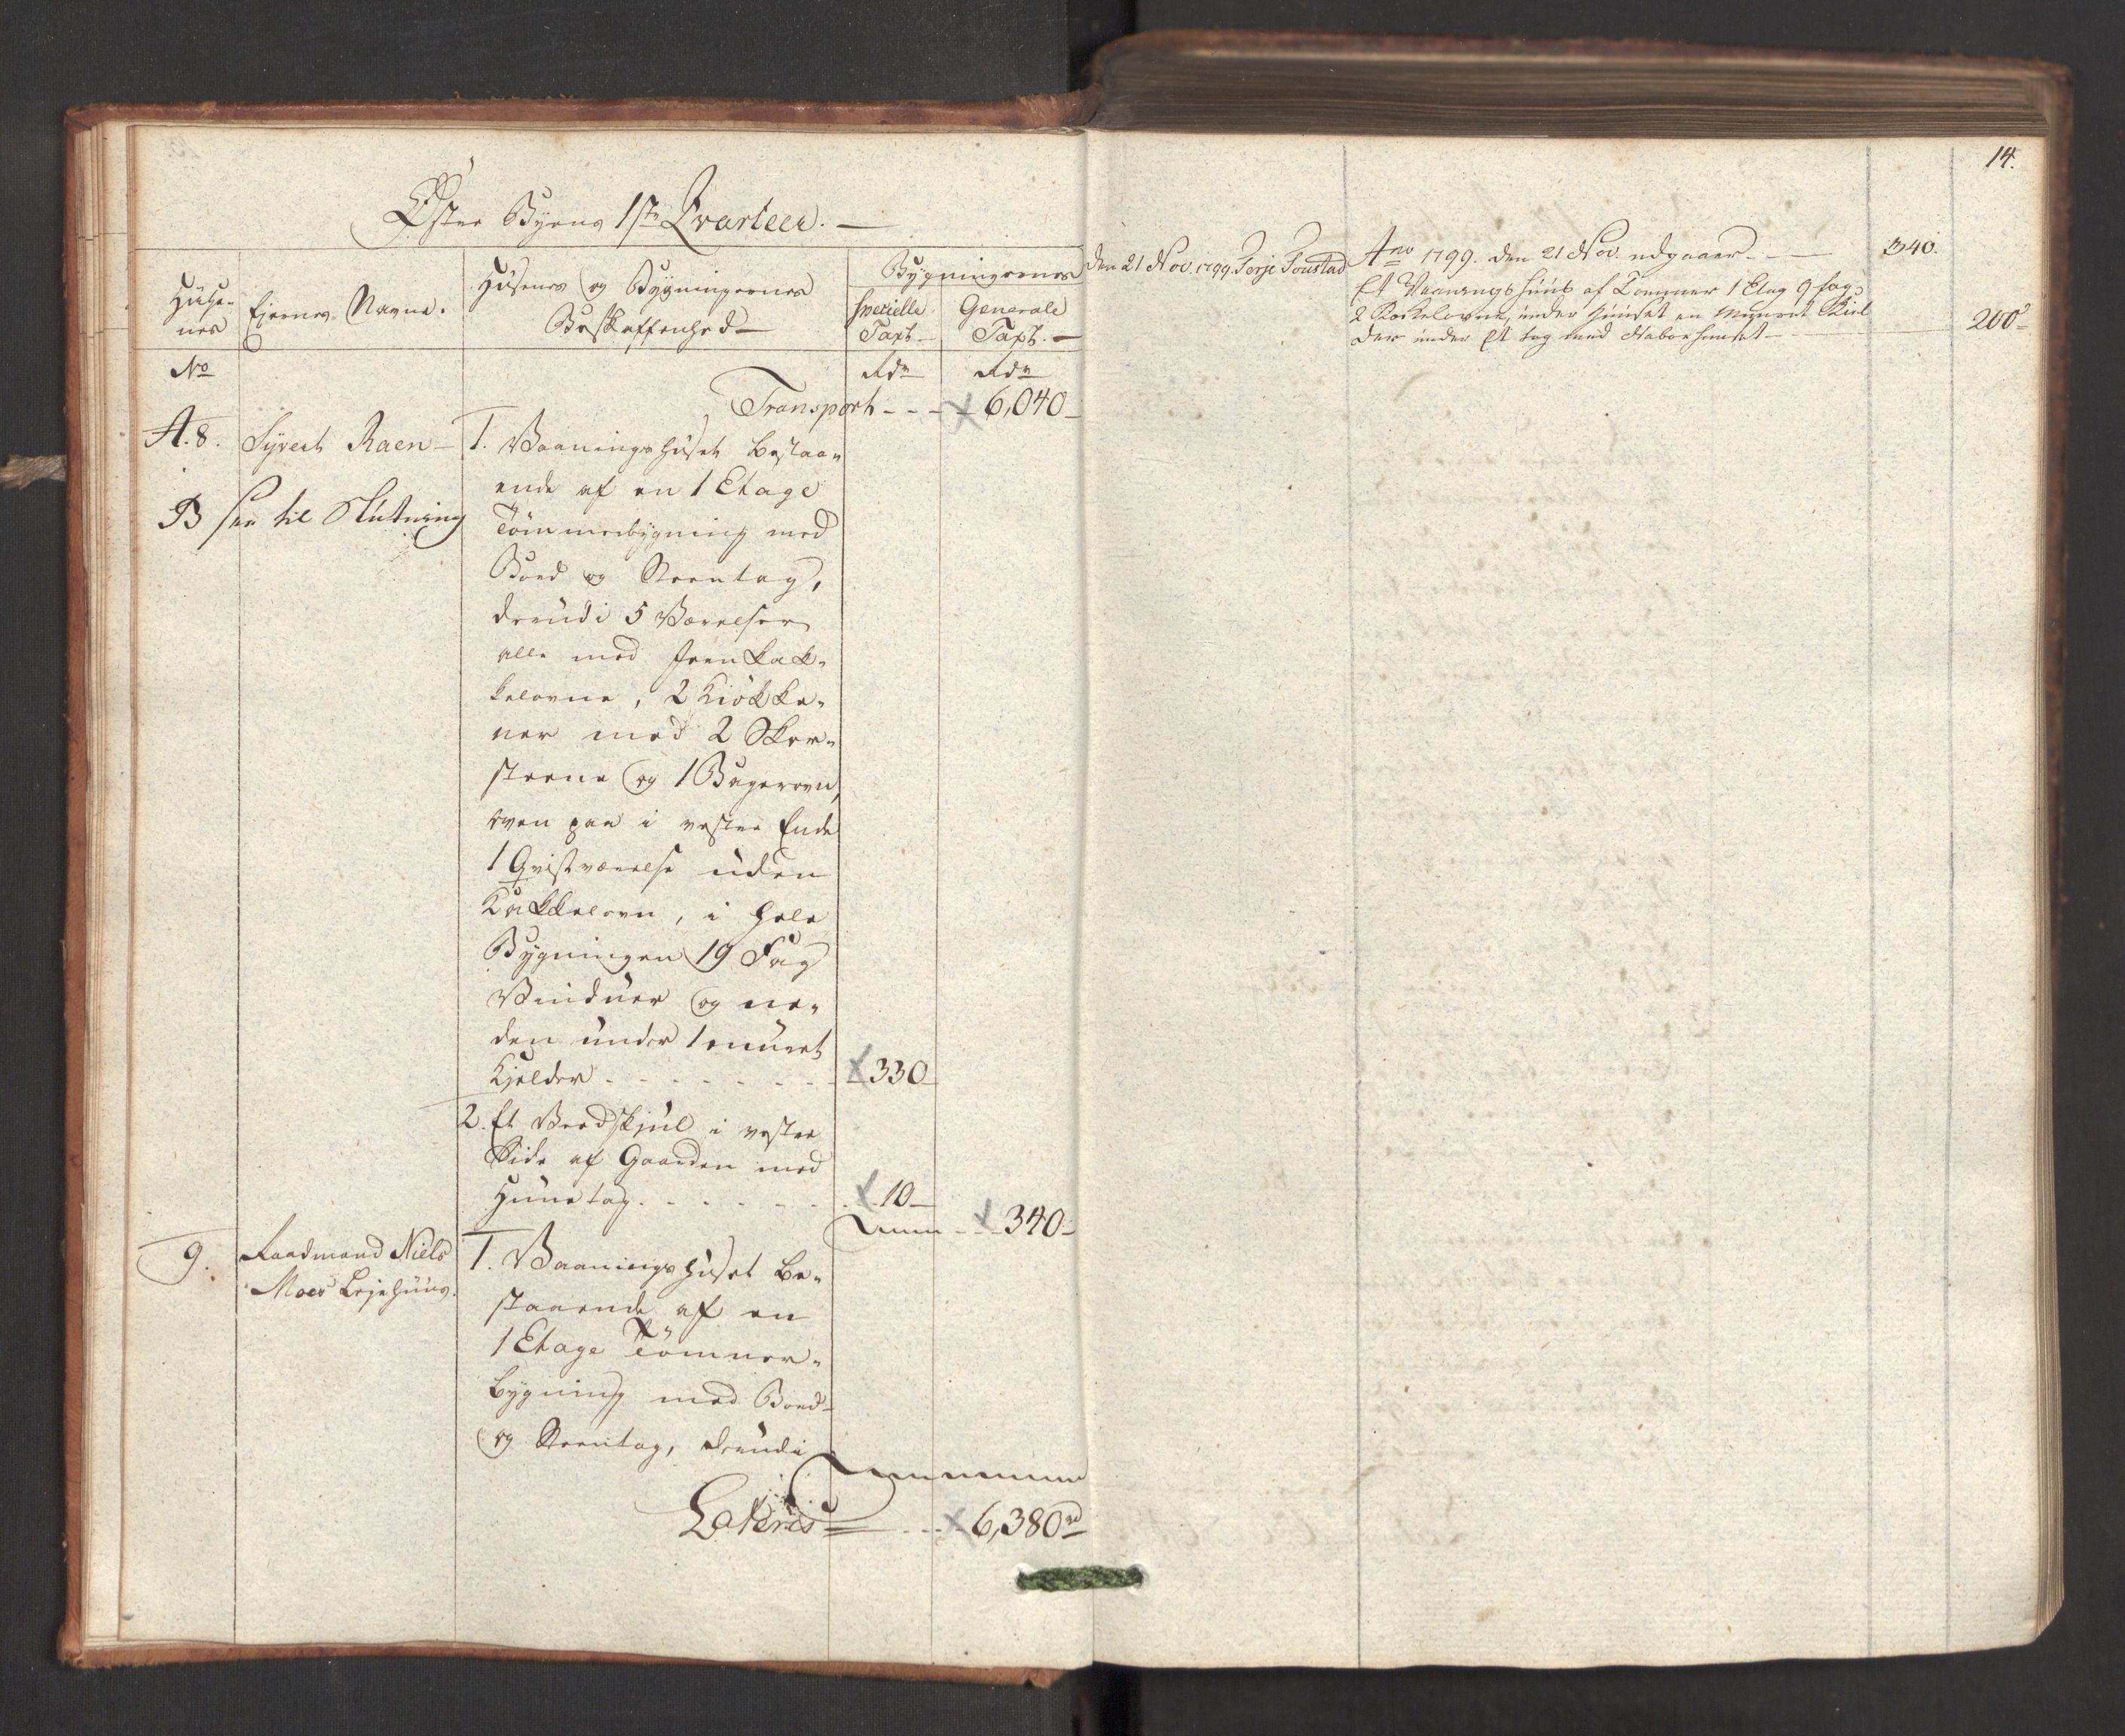 Øster Byens 1ste Qvarteer. —
Huse-
nes
Ejernes Navne.
Husenes og Bygningernes
Beskaffenhed —
Bygningernes
specielle
Taxt —
Generale
Taxt. —
No
Rdr
Rdr
Transport - - - 6,040 -
A. 8. Syvert Raen —
B see til Slutning
1. Vaaningshuset bestaa-
ende af en 1 Etage
Tömmerbygning med
Bord og Steentag,
derudi 5 Værelser
alle med Jern kak-
kelovne, 2 Kiökke-
ner med 2 Skor-
steene og 1 Bagerovn,
oven paa i vester Ende
1 Qvistværelse uden
Kakkelovn, i hele
Bygningen 19 Fag
Vinduer og ne-
den under 1 muret
Kjelder - - - - - - - 330 -
2. Et Vedskjul i vester
Side af Gaarden med
Hunetag - - - - - - 10 -
340 -
9. Raadmand Niels
Moes Lejehuus.
1. Vaaningshuset be-
staaende af en
1 Etage Tömmer-
bygning med Bord-
og Steentag, derudi
Lateris - - - 6,380 rd
14.
den 21 Nov. 1799. Terje Foustad
Ano 1799. den 21 Nov. udgaaer - — 340.
Et Vaanings huus af Tømmer 1 Etag 9 fag
2 Kackelovne, under huuset en Muuret Kiel
der under Et tag med Naboe huuset — 200